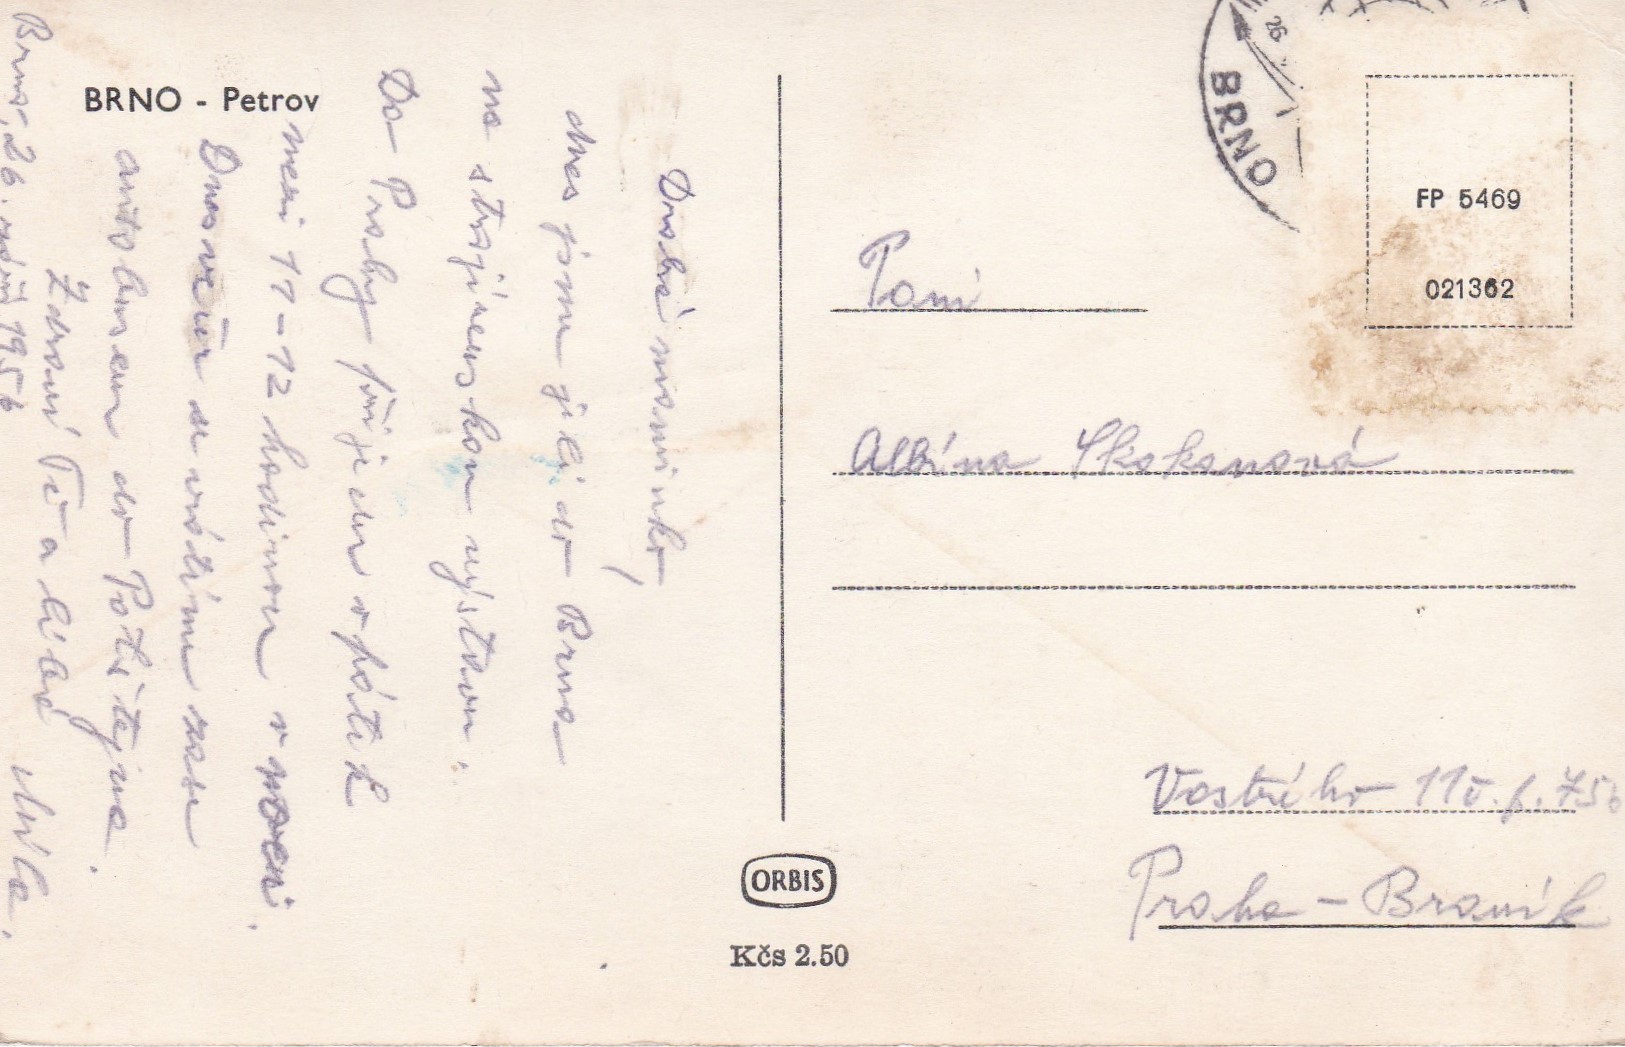 BRNO - Petrov
Drahá maminko,
dnes jsme jeli do Brna
na strojírenskou výstavu.
Do Prahy přijedu v pátek
mezi 11-12 hodinou v noci.
Dnes večer se vrátíme zase
autobusem do Potštejna.
Zdraví Tě a líbá
Míla.
Brno, 26. září 1956
BRNO
26
FP 5469
021362
Paní
Albína Skokanová
Vostrého 11 č.p. 756
Praha - Braník
ORBIS
Kčs 2.50